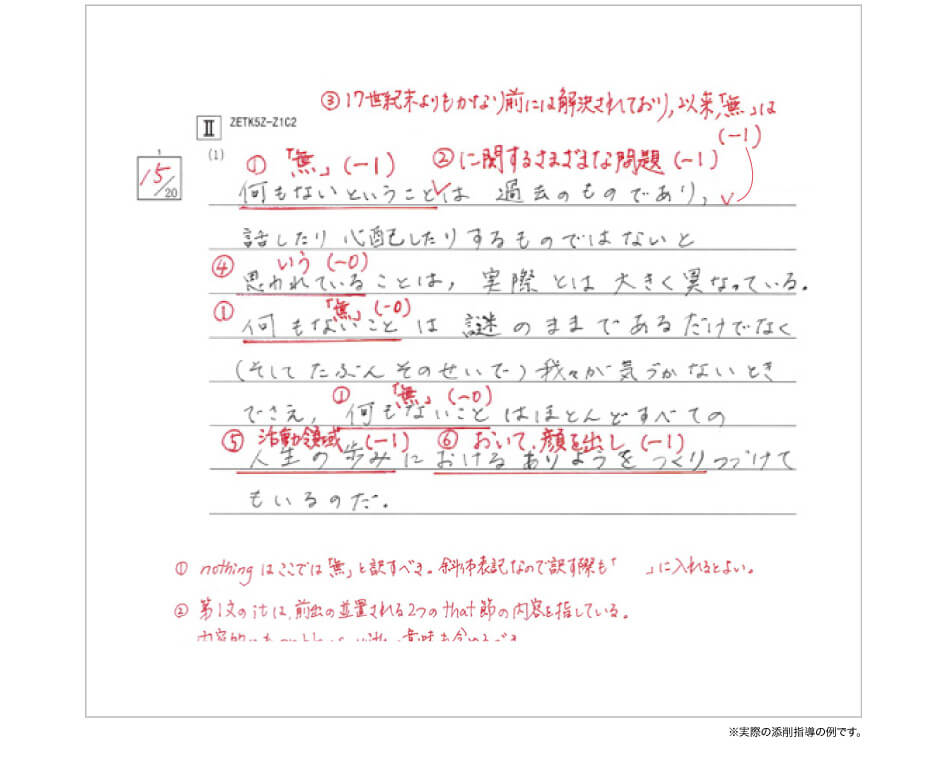 ③17世紀末よりもかなり前には解決されており,以来,「無」は
(-1)
II ZETK5Z-Z1C2
1
15/20
(1)
①「無」(-1) ②に関するさまざまな問題(-1)
何もないということは 過去のものであり,
話したり 心配したりするものではないと
④ いう(-0)
思われていることは, 実際とは大きく異なっている。
① 「無」(-0)
何もないことは 謎のままであるだけでなく
(そしてたぶんそのせいで)我々が気づかないとき
① 「無」(-0)
でさえ, 何もないことはほとんどすべての
⑤ 活動領域(-1) ⑥ おいて,顔を出し(-1)
人生の歩みにおけるありようをつくりつづけて
もいるのだ.
① nothingはここでは「無」と訳すべき。斜体表記なので訳す際も「 」に入れるとよい。
② 第1文のitは,前出の並置される2つのthat節の内容を指している。
※実際の添削指導の例です。